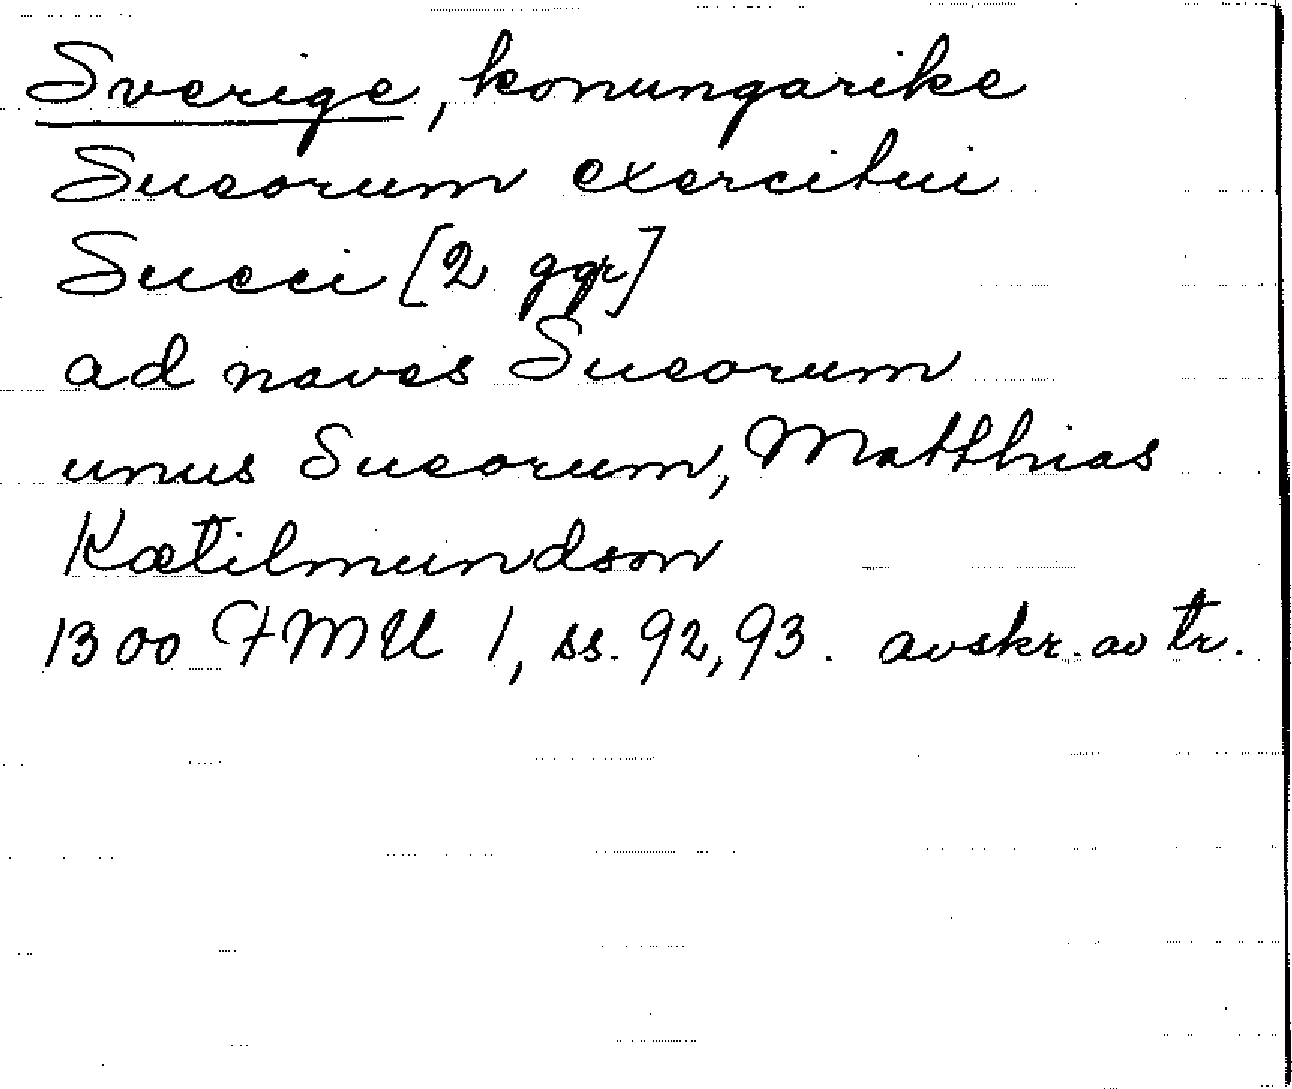 Sverige, konungarike
Sueorum exercitui
Sueci [2 ggr]
ad naves Sueorum
unus Sueorum, Matthias
Kætilmundson
1300 FMU 1, ss. 92, 93. avskr. av tr.